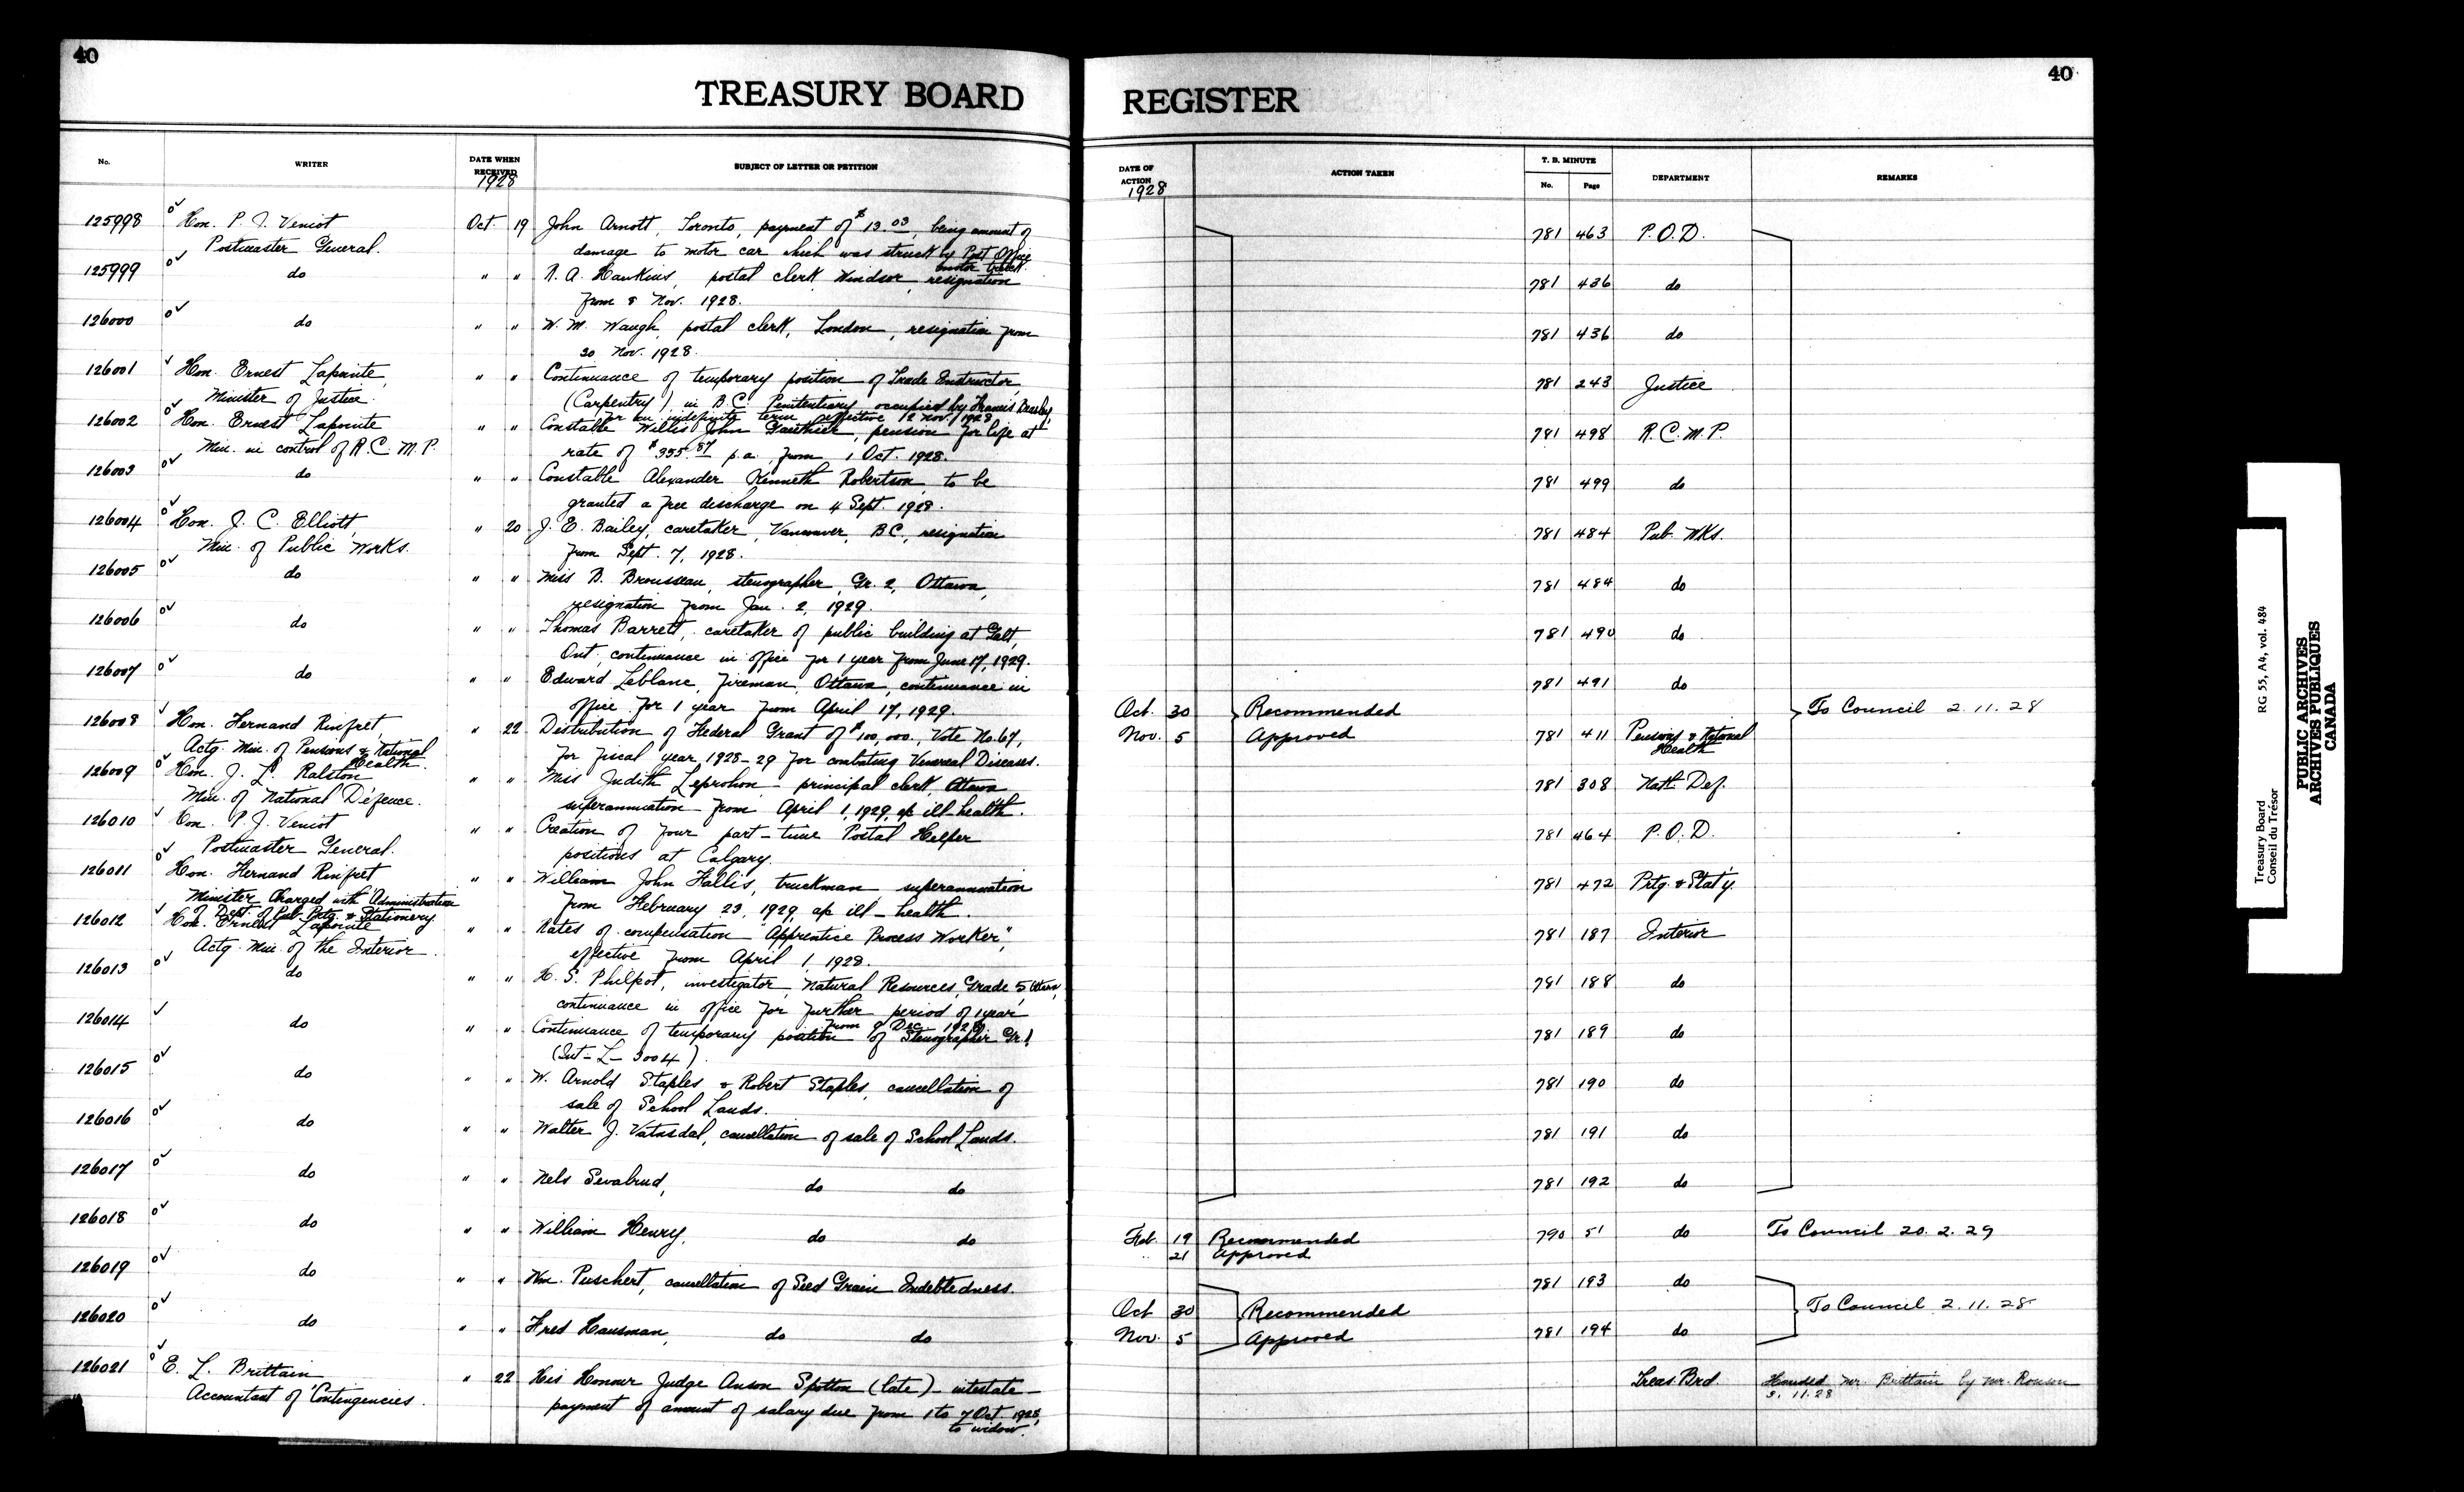 40
TREASURY BOARD
No.
WRITER
DATE WHEN
RECEIVED
1928
SUBJECT OF LETTER OR PETITION
125998 Hon. P. J. Veniot Oct. 19 John Arnott, Toronto, payment of $13.03, being amount of
Postmaster General. damage to motor car which was struck by Post Office
motor truck.
125999 do " " R. A. Hawkins, postal clerk, Windsor, resignation
from 8 Nov. 1928.
126000 do " " W. M. Waugh, postal clerk, London, resignation from
20 Nov. 1928.
126001 Hon. Ernest Lapointe, " " Continuance of temporary position of Trade Instructor
Minister of Justice. (Carpentry) in B.C. Penitentiary occupied by Francis
for an indefinite term effective 12 Nov. 1928
126002 Hon. Ernest Lapointe " " Constable Willis John Gauthier, pension for life at
Min. in control of R.C.M.P. rate of $355.87 p.a. from 1 Oct. 1928.
126003 do " " Constable Alexander Kenneth Robertson, to be
granted a free discharge on 4 Sept. 1928.
126004 Hon. J. C. Elliott, " 20 J. E. Bailey, caretaker, Vancouver, B.C., resignation
Min. of Public Works. from Sept. 7, 1928.
126005 do " " Miss B. Brousseau, stenographer, Gr. 2, Ottawa,
resignation from Jan. 2, 1929.
126006 do " " Thomas Barrett, caretaker of public building at Galt,
Ont., continuance in office for 1 year from June 17, 1929.
126007 do " " Edward Leblanc, fireman, Ottawa, continuance in
office for 1 year from April 17, 1929.
126008 Hon. Fernand Rinfret, " 22 Distribution of Federal Grant of $100,000., Vote No. 67,
Actg. Min. of Pensions & National
Health. for fiscal year 1928-29 for combating Venereal Diseases.
126009 Hon. J. L. Ralston " " Miss Judith Leprohon - principal clerk, Ottawa
Min. of National Defence. superannuation from April 1, 1929, a/c ill-health.
126010 Hon. P. J. Veniot " " Creation of four part-time Postal Helper
Postmaster General. positions at Calgary.
126011 Hon. Fernand Rinfret " " William John Hallis, truckman superannuation
Minister Charged with Administration
of Dept. of Pub. Prtg. & Stationery from February 23, 1929, a/c ill-health.
126012 Hon. Ernest Lapointe " " Rates of compensation "Apprentice Process Worker",
Actg. Min. of the Interior. effective from April 1, 1928.
126013 do " " H. S. Philpot, investigator, Natural Resources, Grade 5, Ottawa,
continuance in office for further period of 1 year
from 9 Dec. 1928.
126014 do " " Continuance of temporary position of Stenographer Gr. 1
(Int-L-3004).
126015 do " " W. Arnold Staples & Robert Staples, cancellation of
sale of School Lands.
126016 do " " Walter J. Vatnsdal, cancellation of sale of School Lands.
126017 do " " Nels Sevalrud, do do
126018 do " " William Henry, do do
126019 do " " Wm. Puschert, cancellation of Seed Grain Indebtedness.
126020 do " " Fred Hausman, do do
126021 E. L. Brittain " 22 His Honour Judge Anson Spotton (late) - intestate -
Accountant of Contingencies. payment of amount of salary due from 1 to 7 Oct. 1928,
to widow.
REGISTER
40
DATE OF
ACTION
1928
ACTION TAKEN
T. B. MINUTE
No. Page
DEPARTMENT
REMARKS
781 463 P.O.D.
781 436 do
781 436 do
781 243 Justice
781 498 R.C.M.P.
781 499 do
781 484 Pub. Wks.
781 484 do
781 490 do
781 491 do
Oct. 30 Recommended To Council 2.11.28
Nov. 5 Approved 781 411 Pensions & National
Health
781 308 Natl. Def.
781 464 P.O.D.
781 472 Prtg. & Staty.
781 187 Interior
781 188 do
781 189 do
781 190 do
781 191 do
781 192 do
Feb. 19 Recommended 790 51 do To Council 20.2.29
" 21 Approved
781 193 do
Oct 30 Recommended To Council 2.11.28
Nov. 5 Approved 781 194 do
Treas. Brd. Handed Mr. Brittain by Mr. Ronson
3.11.28
Treasury Board RG 55, A4, vol. 484
Conseil du Trésor
PUBLIC ARCHIVES
ARCHIVES PUBLIQUES
CANADA